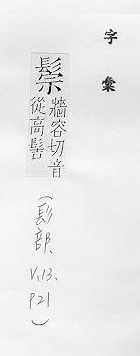 字彙
鬃
牆容切音
從高髻
(髟部、V.13、P21)